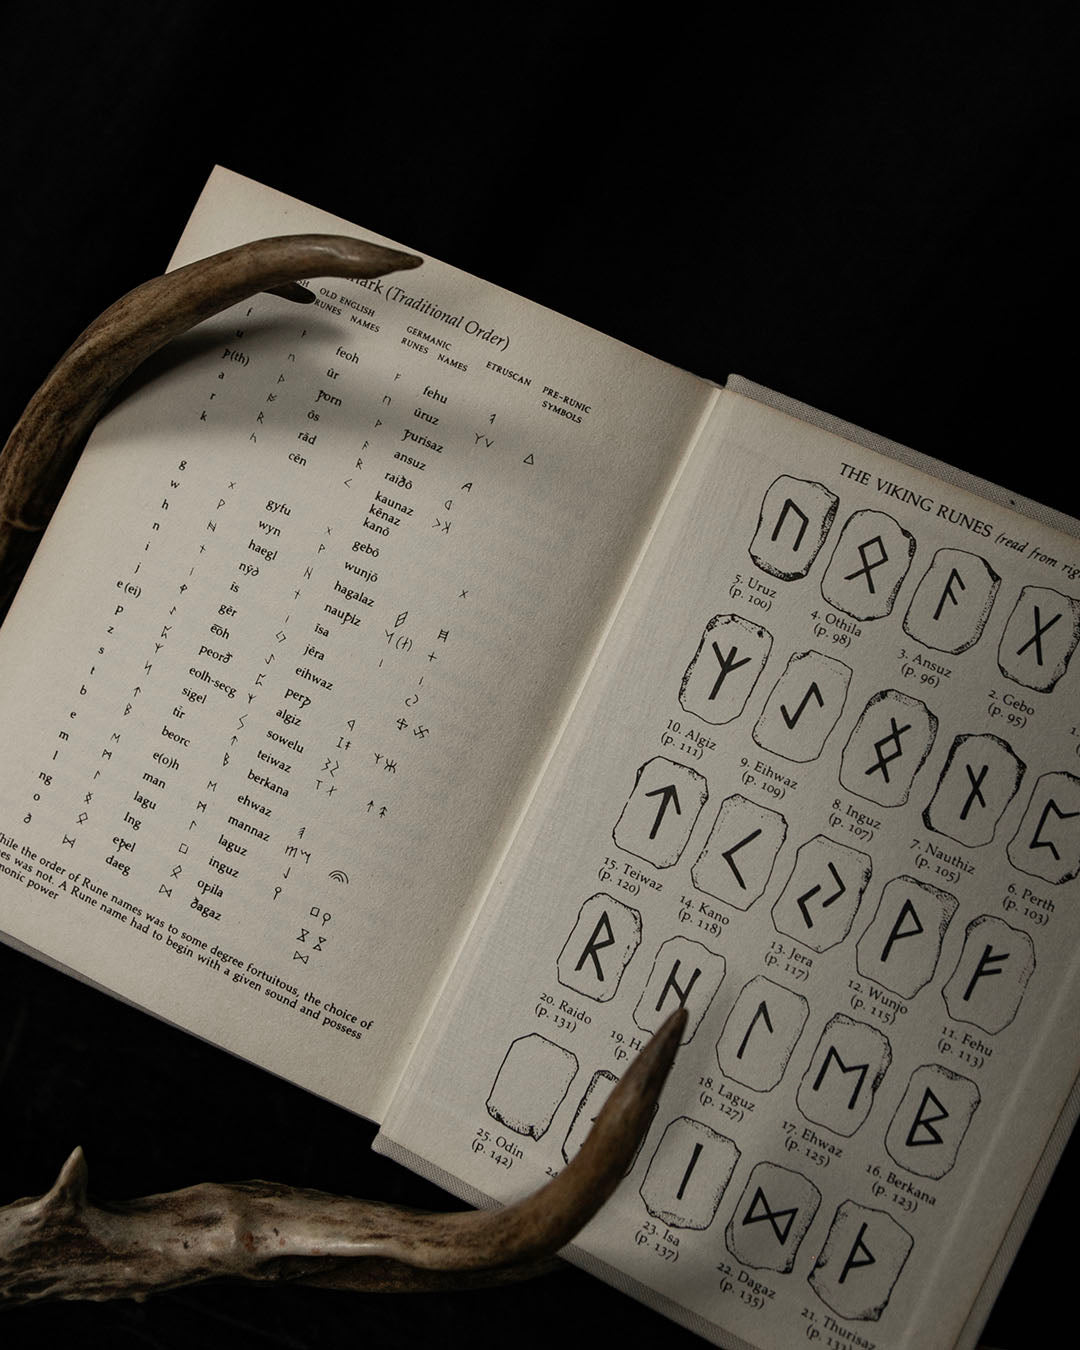 mark (Traditional Order)
OLD ENGLISH
RUNES NAMES
GERMANIC
RUNES NAMES
ETRUSCAN
PRE-RUNIC
SYMBOLS
f ᚠ feoh ᚠ fehu
u ᚢ ūr ᚢ ūruz
þ(th) ᚦ þorn ᚦ þurisaz
a ōs ᚨ ansuz
r ᚱ rād ᚱ raiðō
k cēn ᚲ kaunaz
kēnaz
kanō
g ᚷ gyfu ᚷ gebō
w ᚹ wyn ᚹ wunjō
h ᚻ haegl ᚺ hagalaz
n ᚾ nȳð ᚾ nauþiz
i ᛁ īs ᛁ īsa
j gēr jēra
e(ei) ᛇ ēōh ᛇ eihwaz
p ᛈ peorð ᛈ perþ
z ᛉ eolh-secg ᛉ algiz
s sigel sowelu
t ᛏ tīr ᛏ teiwaz
b ᛒ beorc ᛒ berkana
e ᛖ e(o)h ᛖ ehwaz
m ᛗ man ᛗ mannaz
l ᛚ lagu ᛚ laguz
ng ᛝ Ing inguz
o ᛟ eþel ᛟ oþila
ð ᛞ daeg ᛞ ðagaz
hile the order of Rune names was to some degree fortuitous, the choice of
es was not. A Rune name had to begin with a given sound and possess
monic power
THE VIKING RUNES (read from rig
ᚢ ᛟ ᚨ ᚷ
5. Uruz
(p. 100)
4. Othila
(p. 98)
3. Ansuz
(p. 96)
2. Gebo
(p. 95)
1.
ᛉ ᛇ ᛝ ᚾ ᛈ
10. Algiz
(p. 111)
9. Eihwaz
(p. 109)
8. Inguz
(p. 107)
7. Nauthiz
(p. 105)
6. Perth
(p. 103)
ᛏ ᚲ ᛃ ᚹ ᚠ
15. Teiwaz
(p. 120)
14. Kano
(p. 118)
13. Jera
(p. 117)
12. Wunjo
(p. 115)
11. Fehu
(p. 113)
ᚱ ᚺ ᛚ ᛖ ᛒ
20. Raido
(p. 131)
19. Ha
(p.
18. Laguz
(p. 127)
17. Ehwaz
(p. 125)
16. Berkana
(p. 123)
ᛁ ᛞ ᚦ
25. Odin
(p. 142)
24
23. Isa
(p. 137)
22. Dagaz
(p. 135)
21. Thurisaz